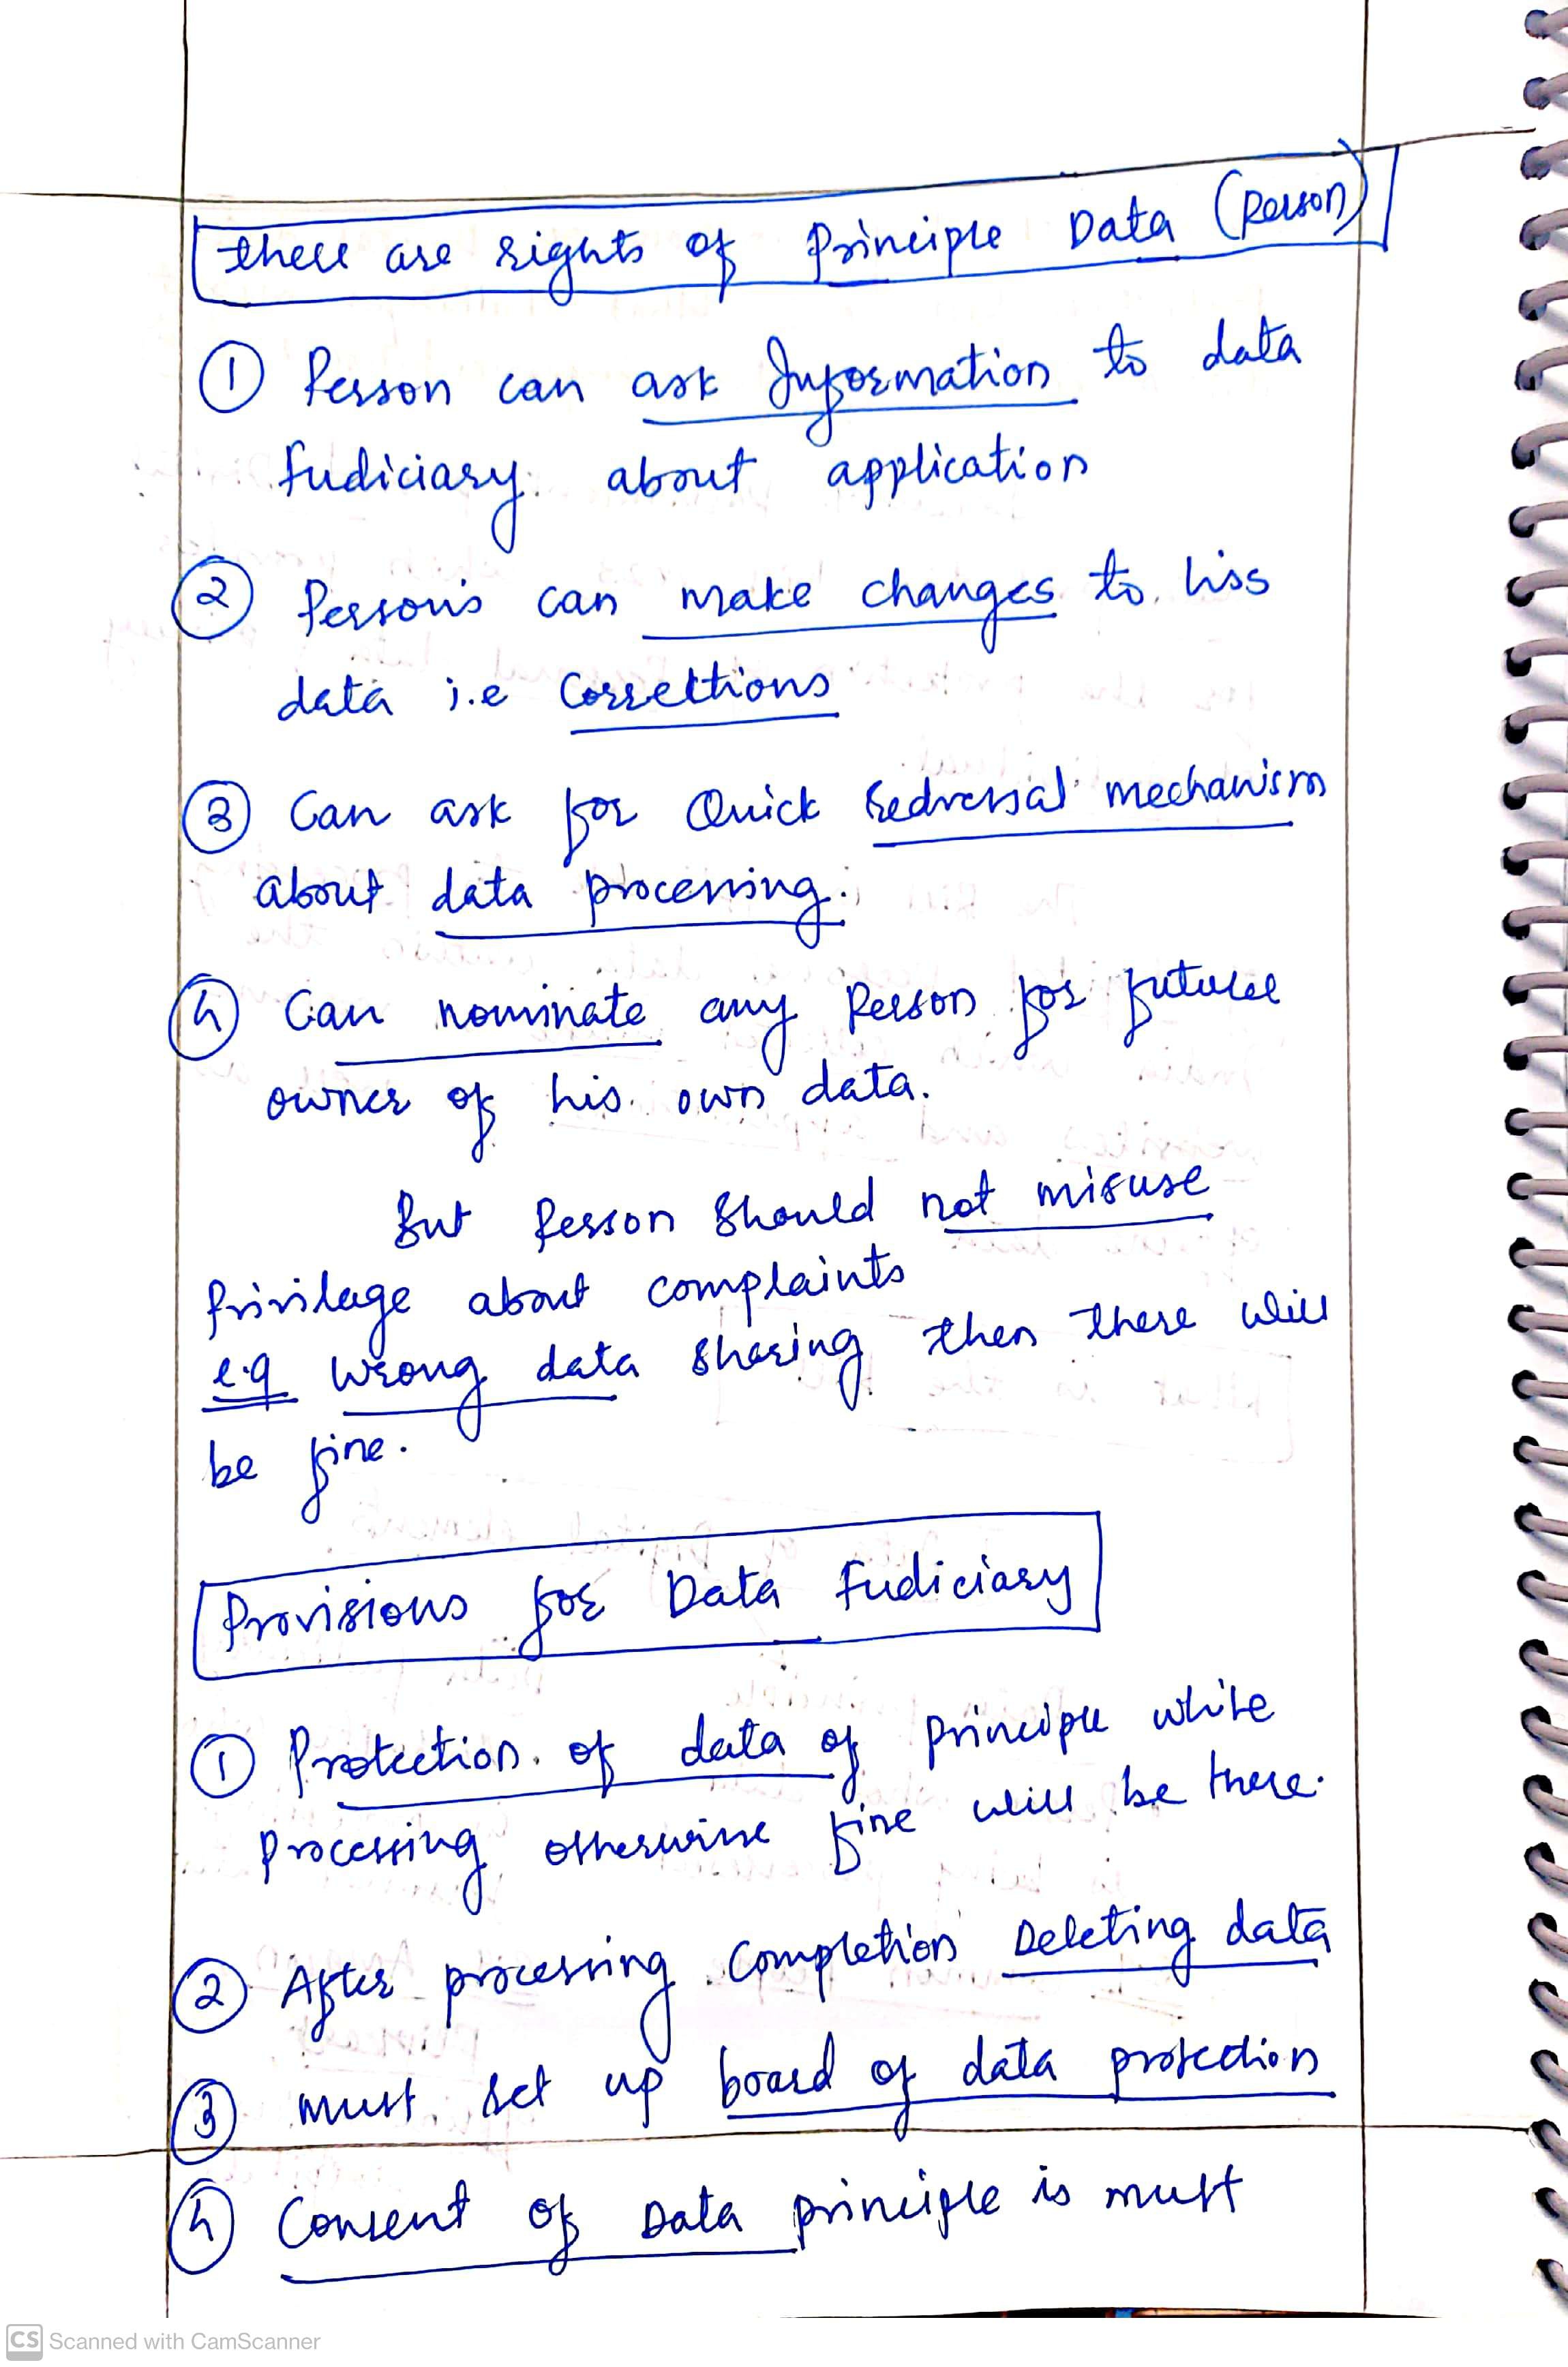 there are rights of Principle Data (Person)
① Person can ask Information to data
fudiciary about application
② Person's can make changes to hiss
data i.e Corrections
③ Can ask for Quick redressal mechanism
about data processing.
④ Can nominate any Person for future
owner of his own data.
But Person should not misuse
Privilage about complaints
e.g wrong data sharing then there will
be fine.
Provisions for Data Fudiciary
① Protection of data of principle while
processing otherwise fine will be there.
② After processing completion Deleting data
③ must set up board of data protection
④ Consent of Data principle is must
CS Scanned with CamScanner